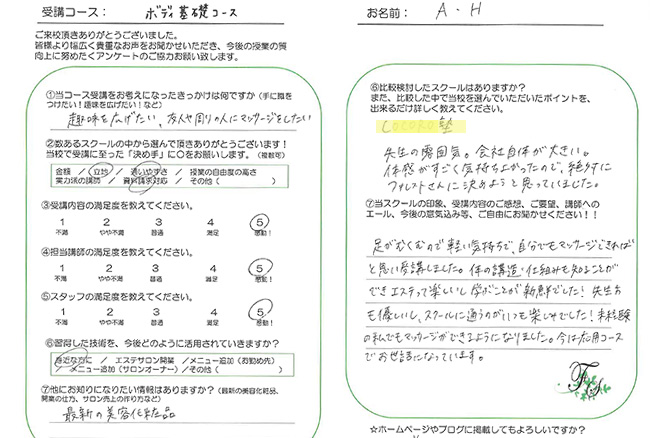 受講コース： ボディ基礎コース
ご来校頂きありがとうございました。
皆様より幅広く貴重なお声をお聞かせいただき、今後の授業の質
向上に努めたくアンケートのご協力お願い致します。
①当コース受講をお考えになったきっかけは何ですか（手に職を
つけたい！趣味を広げたい！など）
趣味を広げたい、友人や周りの人にマッサージをしたい
②数あるスクールの中から選んで頂きありがとうございます！
当校で受講に至った「決め手」に〇をお願いします。（複数可）
金額 ／ 立地 ／ 通いやすさ ／ 授業の自由度の高さ
実力派の講師 ／ 資料請求対応 ／ その他（ ）
③受講内容の満足度を教えてください。
1 2 3 4 5
不満 やや不満 普通 満足 感動！
④担当講師の満足度を教えてください。
1 2 3 4 5
不満 やや不満 普通 満足 感動！
⑤スタッフの満足度を教えてください。
1 2 3 4 5
不満 やや不満 普通 満足 感動！
⑥習得した技術を、今後どのように活用されていきますか？
身近な方に ／ エステサロン開業 ／メニュー追加（お勤め先）
／メニュー追加（サロンオーナー）／その他（ ）
⑦他にお知りになりたい情報はありますか？（最新の美容化粧品、
開業の仕方、サロン売上の作り方など）
最新の美容化粧品
お名前： A・H
⑥比較検討したスクールはありますか？
また、比較した中で当校を選んでいただいたポイントを、
出来るだけ詳しく教えてください。
COCORO塾
先生の雰囲気。会社自体が大きい。
体感がすごく気持ちよかったので、絶対に
フォレストさんに決めようと思っていました。
⑦当スクールの印象、受講内容のご感想、ご要望、講師への
エール、今後の意気込み等、ご自由にお聞かせください！！
足がむくむので軽い気持ちで、自分でもマッサージできれば
と思い受講しました。体の講造・仕組みも知ることが
できエステって楽しいし学ぶことが新鮮でした！先生方
も優しいし、スクールに通うのがいつも楽しみでした！未経験
の私でもマッサージができるようになりました。今は応用コース
でお世話になっています。
☆ホームページやブログに掲載してもよろしいですか？